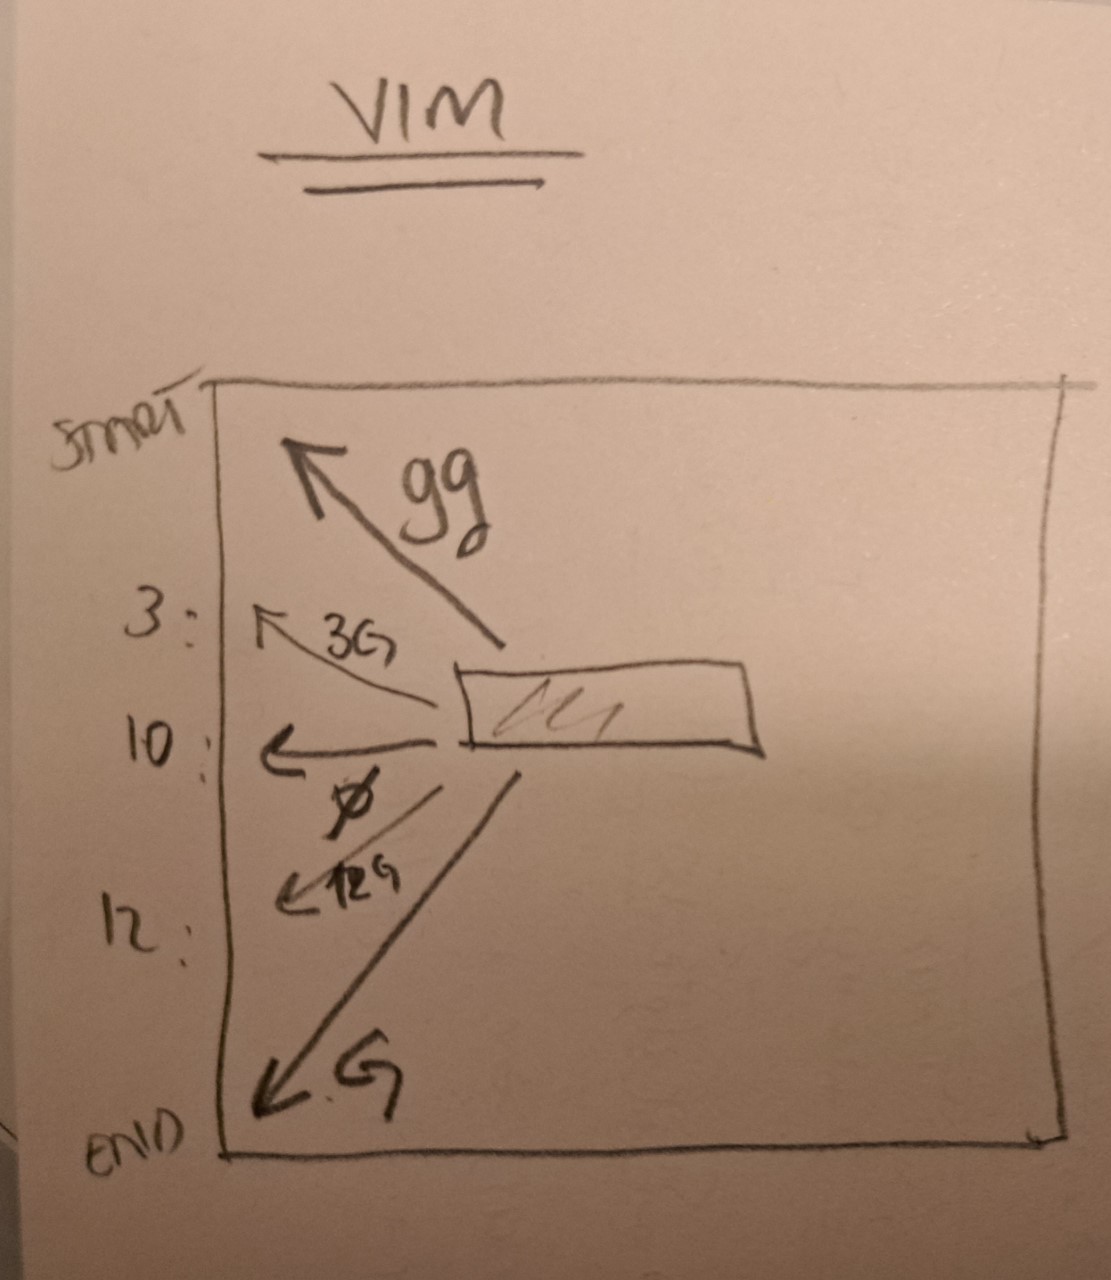 VIM
START
gg
3:
3G
10:
0
12G
12:
G
END